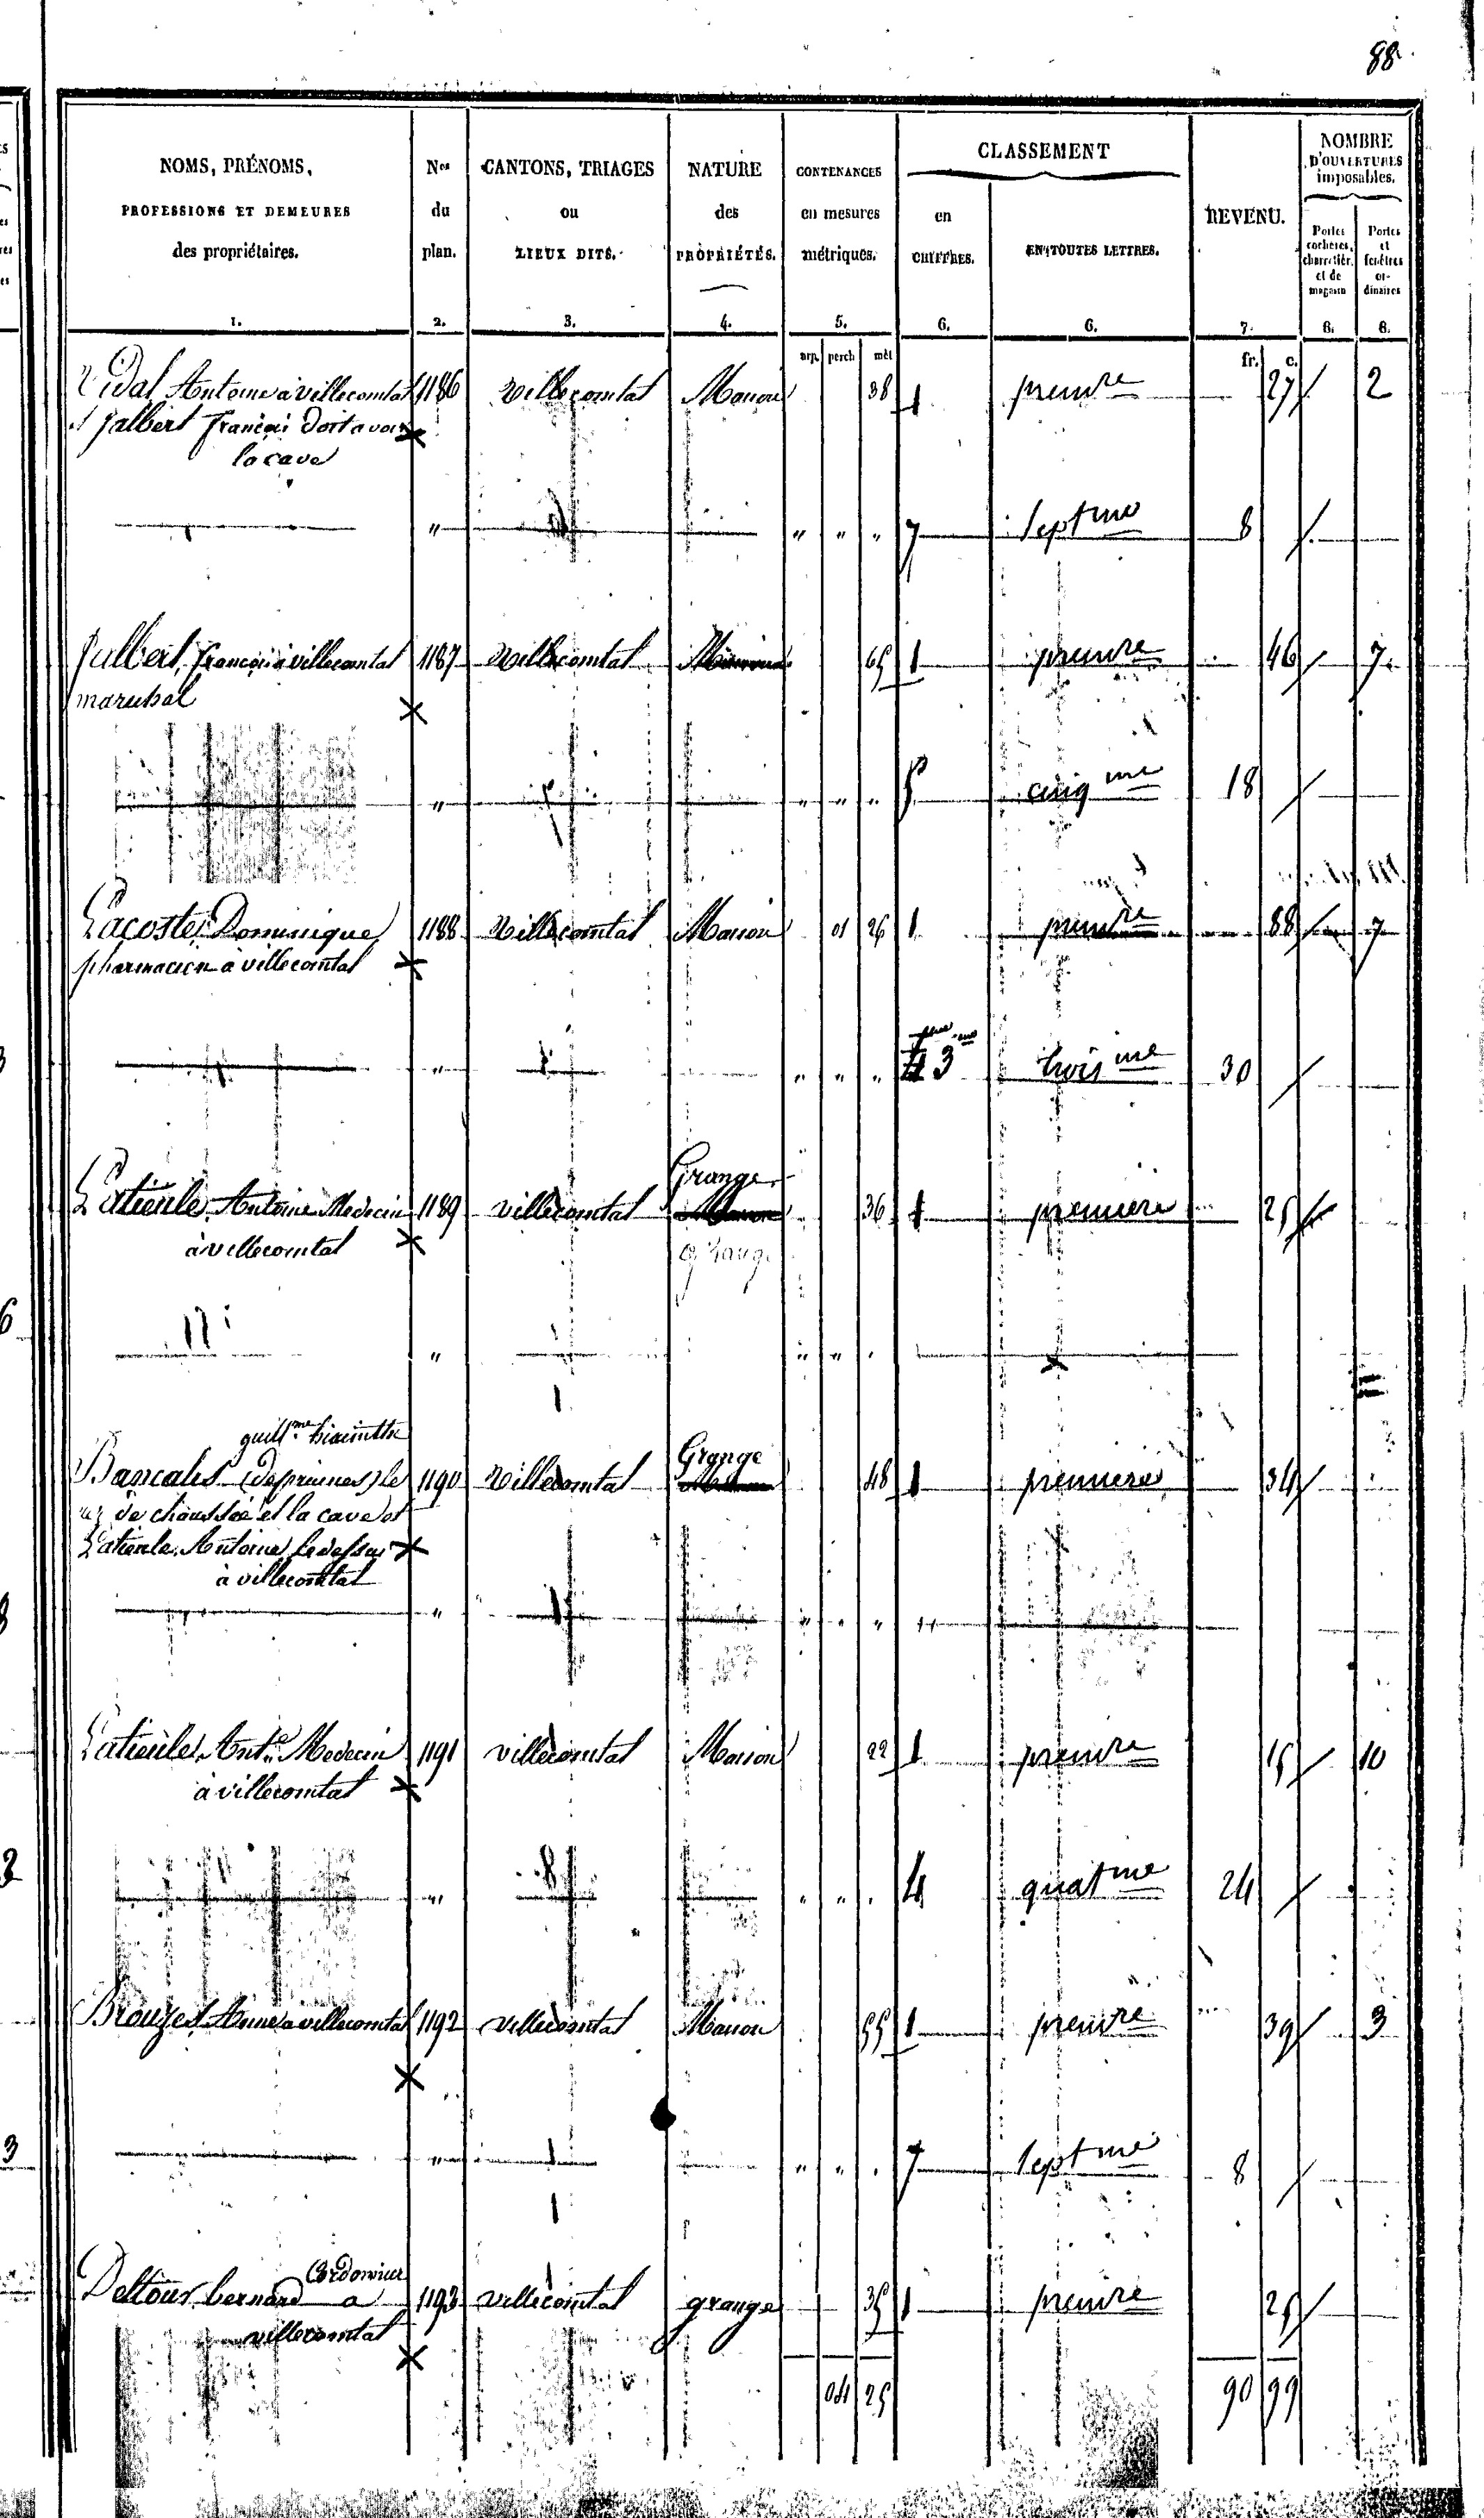 88
NOMS, PRÉNOMS, PROFESSIONS ET DEMEURES des propriétaires. 1.
Nos du plan. 2.
CANTONS, TRIAGES ou LIEUX DITS. 3.
NATURE des PROPRIÉTÉS. 4.
CONTENANCES en mesures métriques. 5.
CLASSEMENT
en CHIFFRES. 6.
EN TOUTES LETTRES. 6.
REVENU. 7.
NOMBRE D'OUVERTURES imposables.
Portes cochères, charretièr. et de magasin 8.
Portes et fenêtres ordinaires 8.
arp. perch mèt fr. c.
Vidal Antoine à villecomtal 1186 Villecomtal Maison 38 1 premre 27 2
et Jalbert françois doit avoir
la cave
" " " " 7 septme 8
Jalbert françois à villecomtal 1187 Villecomtal Maison 65 1 premre 46 7
marechal
" " " " 5 cinqme 18
Lacoste Dominique 1188 Villecomtal Maison 01 26 1 premre 88 7
pharmacien à villecomtal
" " " " 3 troisme 30
Grange
Latieule Antoine Medecin 1189 villecomtal 36 1 premiere 25
à villecomtal grange
" " " "
guillme hiacinthe Grange
Bancalis (de pruines) le 1190 Villecomtal 48 1 premiere 34
rez de chaussée et la cave et
Latieule Antoine le dessus
à villecomtal
" " " " "
Latieule Ante Medecin 1191 villecomtal Maison 22 1 premre 15 10
à villecomtal
" " " " 4 quatme 24
Brouzes Anne a villecomtal 1192 villecomtal Maison 55 1 premre 39 3
" " " " 7 septme 8
Cordonnier
Deltour bernard a 1193 villecomtal grange 35 1 premre 25
villecomtal
04 25 90 99